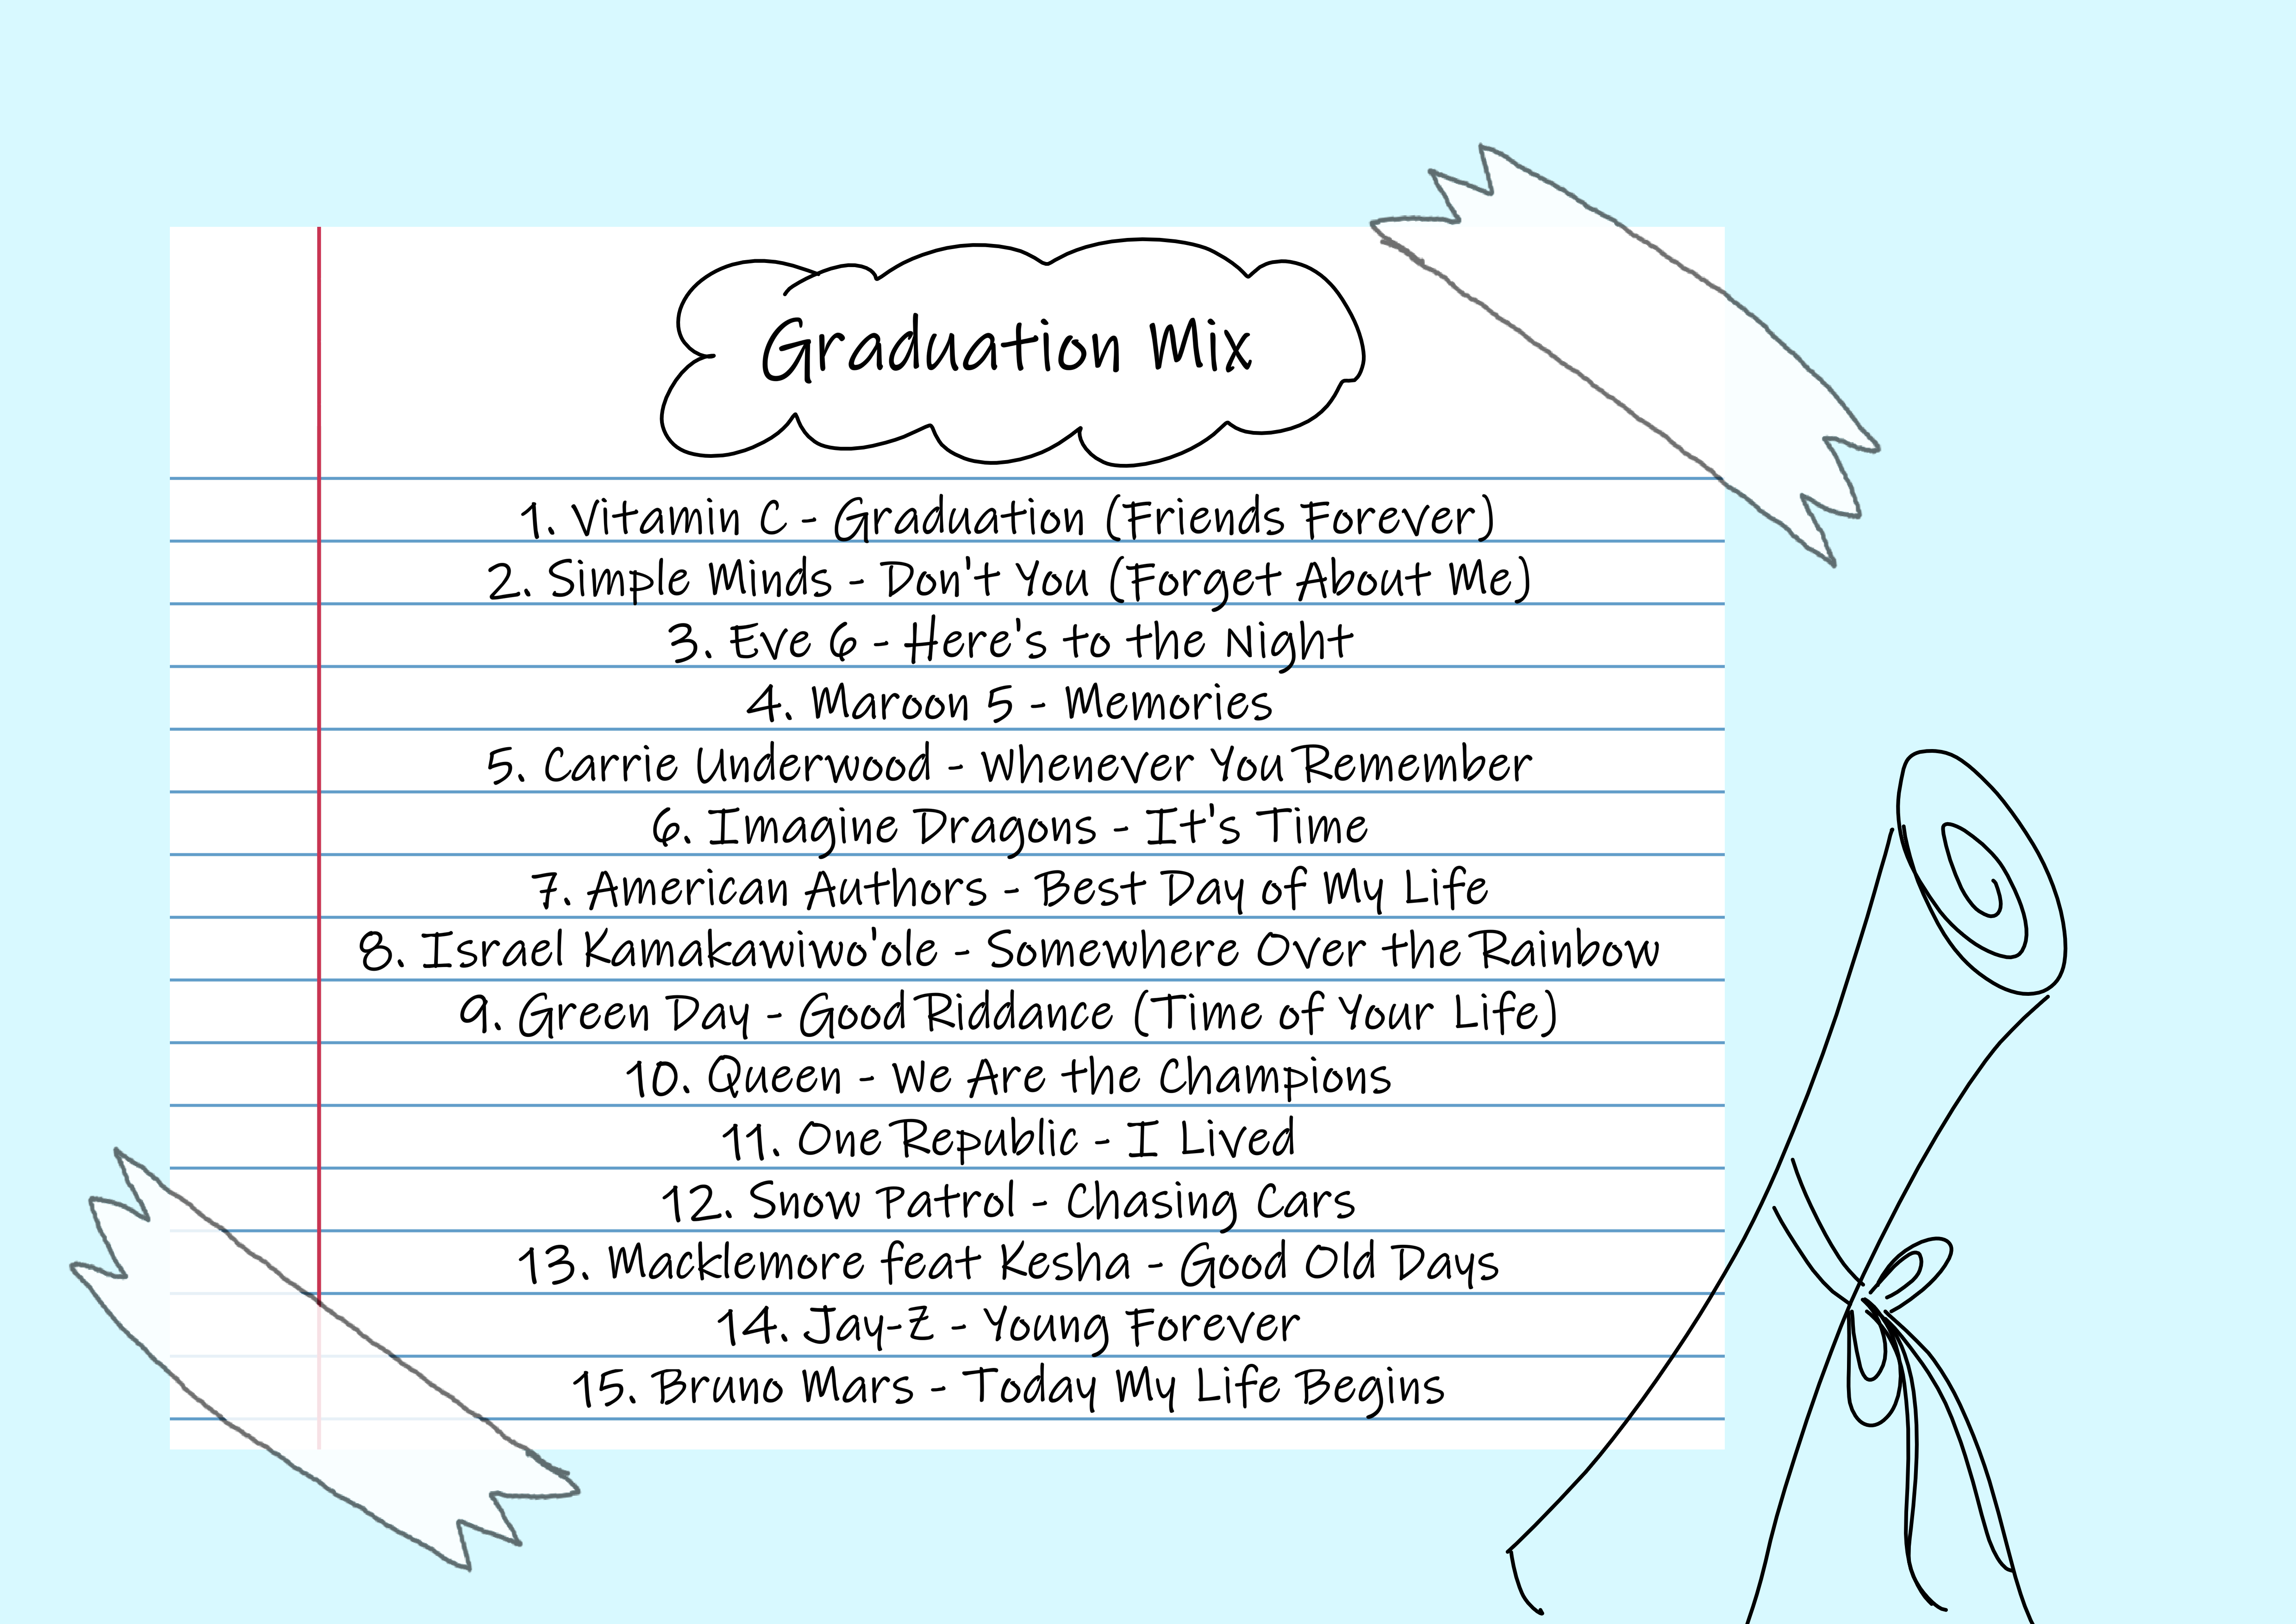 Graduation Mix
1. Vitamin C - Graduation (Friends Forever)
2. Simple Minds - Don't You (Forget About Me)
3. Eve 6 - Here's to the Night
4. Maroon 5 - Memories
5. Carrie Underwood - Whenever You Remember
6. Imagine Dragons - It's Time
7. American Authors - Best Day of My Life
8. Israel Kamakawiwo'ole - Somewhere Over the Rainbow
9. Green Day - Good Riddance (Time of Your Life)
10. Queen - We Are the Champions
11. One Republic - I Lived
12. Snow Patrol - Chasing Cars
13. Macklemore feat Kesha - Good Old Days
14. Jay-Z - Young Forever
15. Bruno Mars - Today My Life Begins